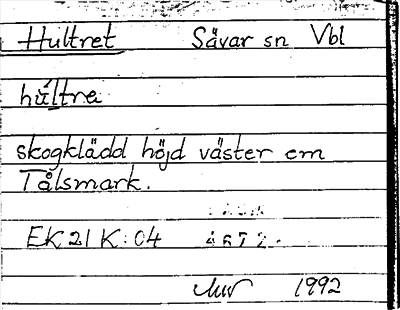 Hultret Sävar sn Vbl
húltre
skogklädd höjd väster om
Tålsmark.
EK 21 K:04
1992